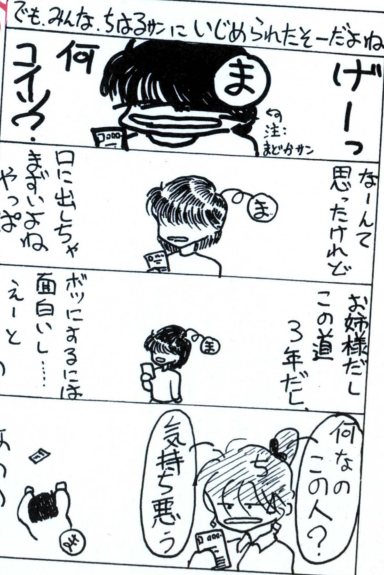 でも、みんな、ちはるサンにいじめられたそーだよね
げーっ
ま
何
コイツ？
注：
まどかサン
なーんて
思ったけれど
ま
口に出しちゃ
まずいよね
やっぱ
お姉様だし
この道
3年だし、
ま
ボツにするには
面白いし……
えーと
何なの
この人？
ち
気持ち悪う